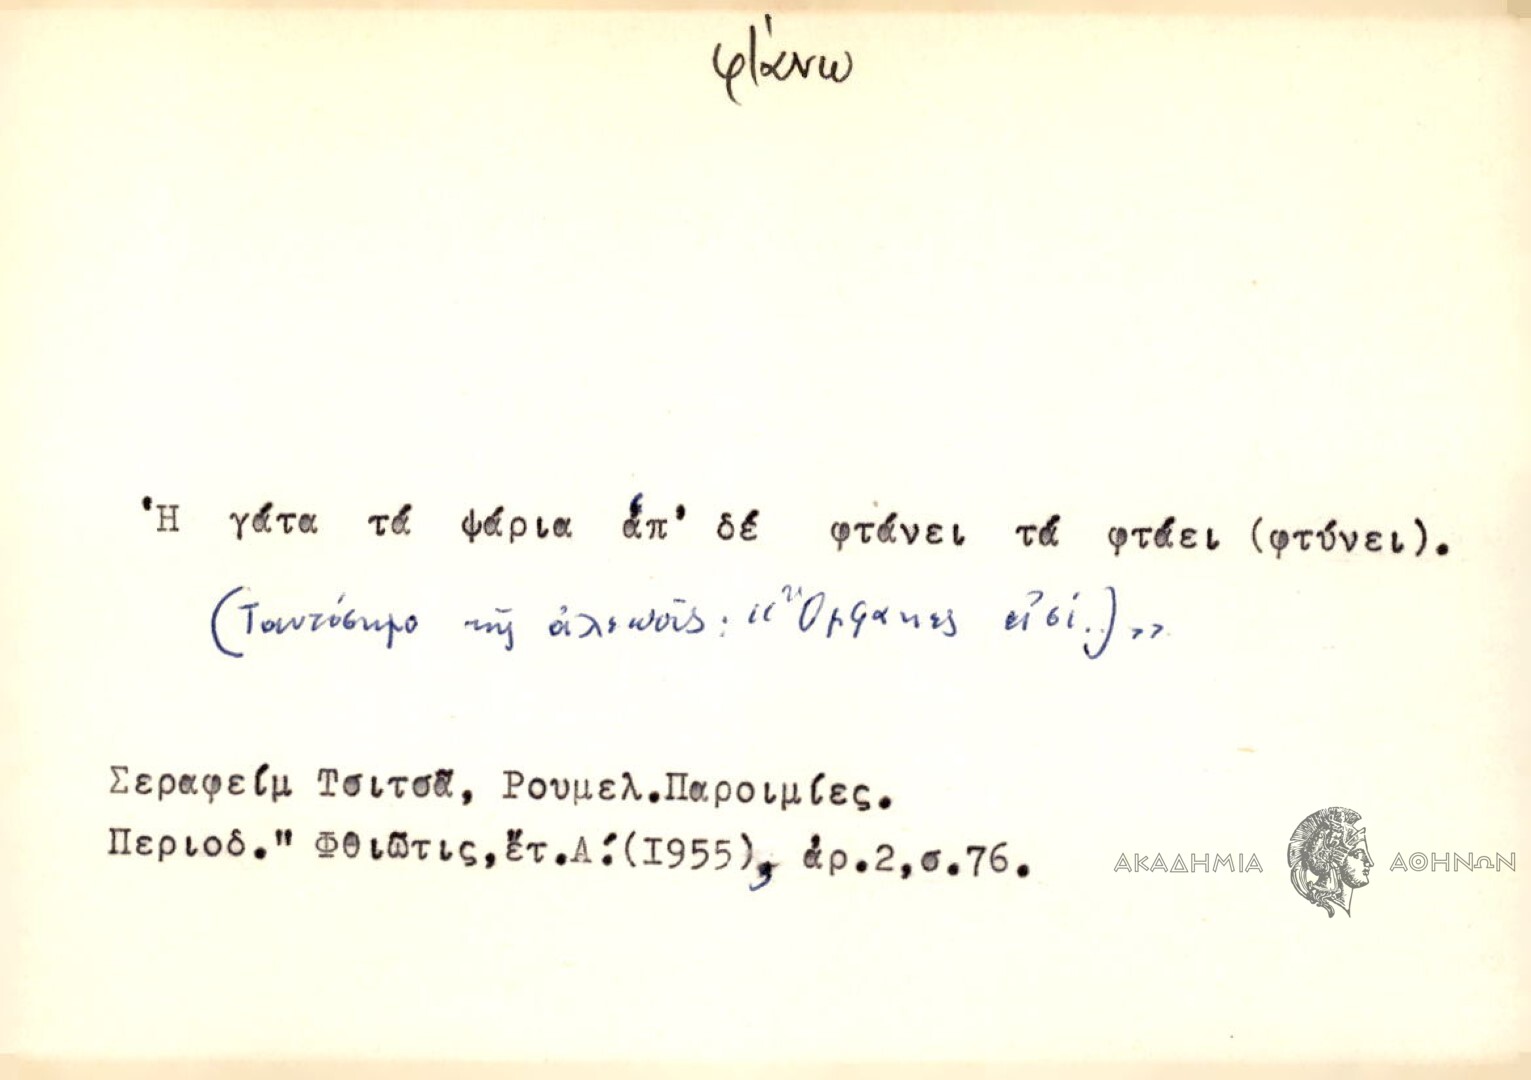 φτάνω
Ἡ γάτα τά ψάρια ἀπ' δέ φτάνει τά φτάει (φτύνει).
(Ταυτόσημο τῆς ἀλεποῦς: "Ὄμφακες εἰσί.)"
Σεραφείμ Τσιτσᾶ, Ρουμελ.Παροιμίες.
Περιοδ." Φθιῶτις,ἔτ.Α΄(I955), ἀρ.2,σ.76.
ΑΚΑΔΗΜΙΑ ΑΘΗΝΩΝ